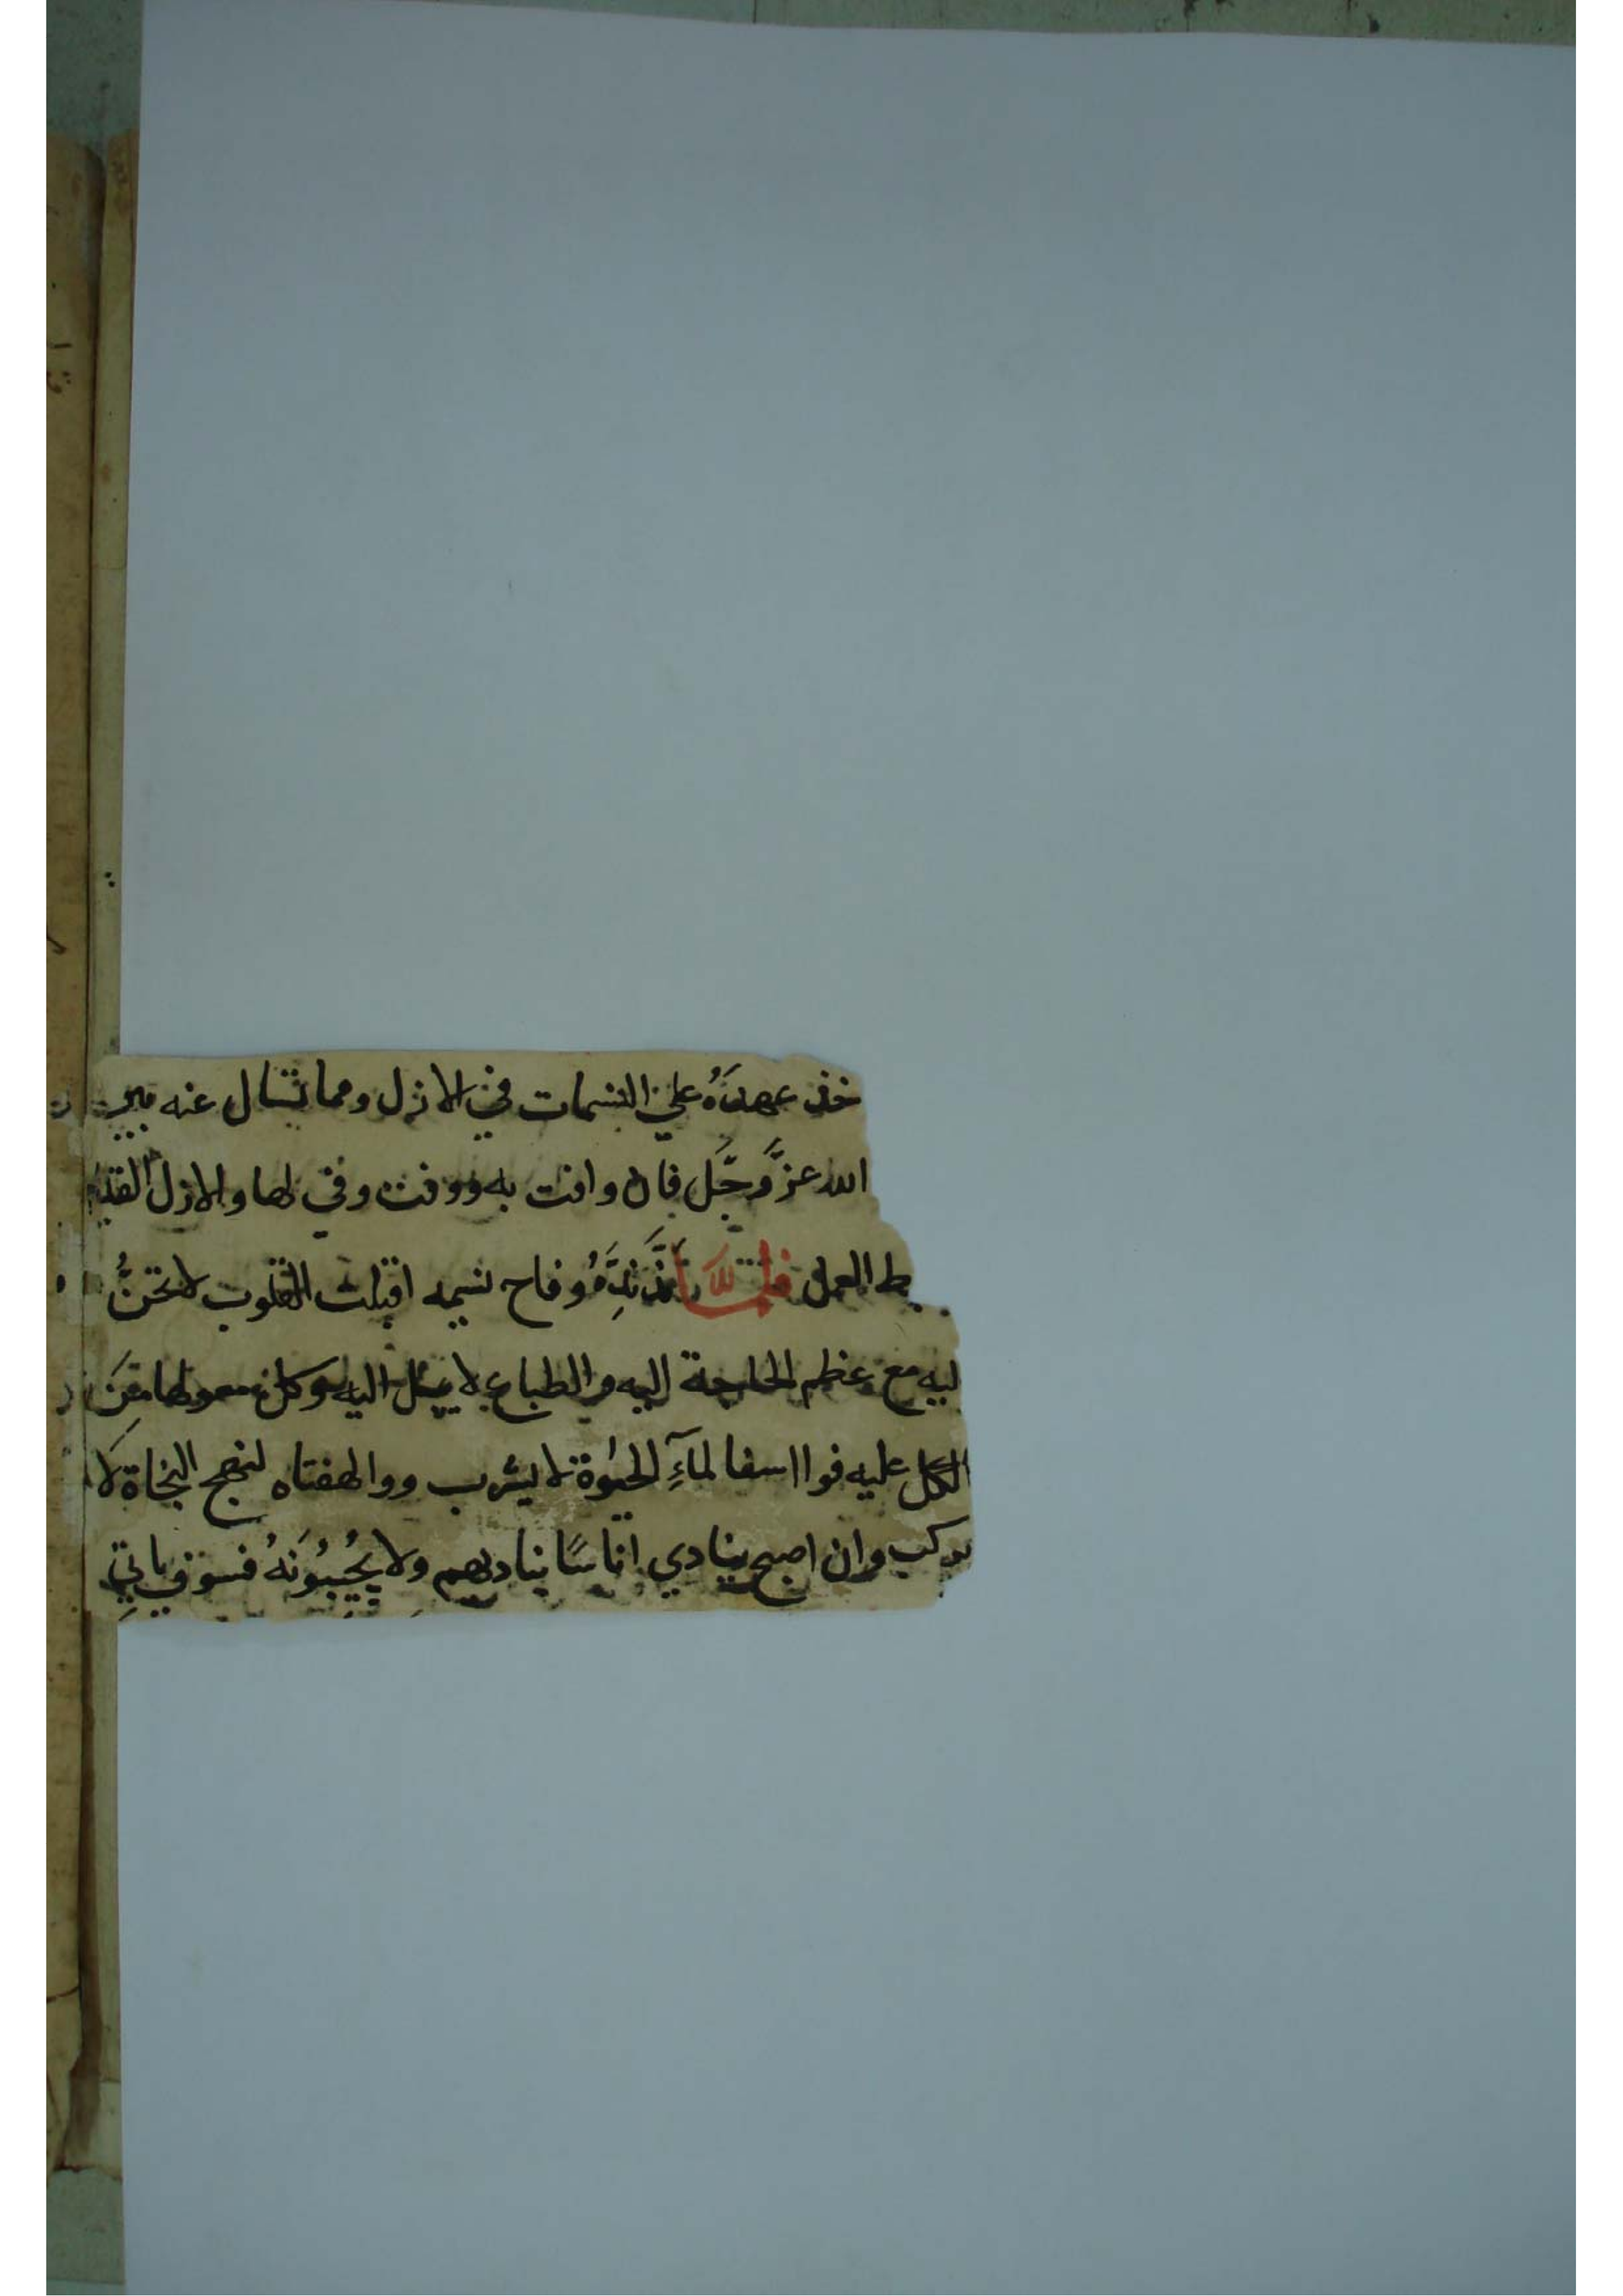 خذ عهدَهُ علي النسمات في الازل ومما تسال عنه بين
الله عزَّ وجَّل فان وافت به ووفت وفي لها والازل القد
ط العمل فلمَّا نَدُّهُ وفاح نسيمه اقبلت القلوب لا تحنُّ
ليه مع عظم الحاجة اليه والطباع لا يميل اليه وكان معولها مَعَ
الكل عليه فوا اسفا لمآءِ الحيٰوة لا يشرب ووا لهفتاه لنهج النجاة لا
يركب وان اصبح ينادي اناسًا يناديهم ولا يُجيبُونَهُ فسوف ياتي